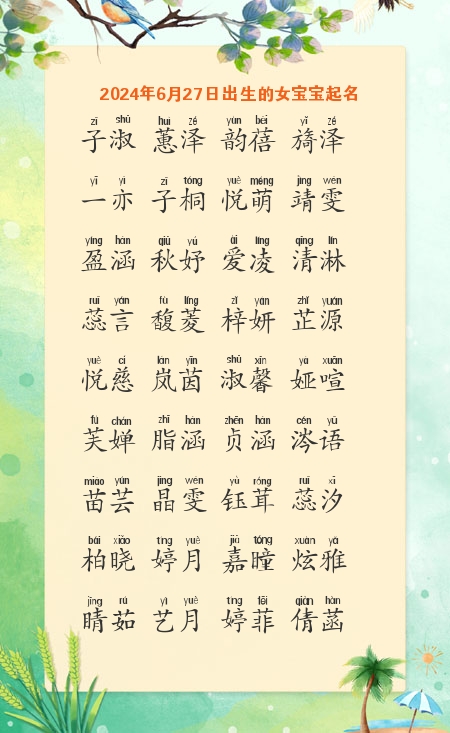 2024年6月27日出生的女宝宝起名
zǐ shū huì zé yùn bèi yǐ zé
子淑 蕙泽 韵蓓 旖泽
yī yì zǐ tóng yuè méng jìng wén
一亦 子桐 悦萌 靖雯
yíng hán qiū yú ài líng qīng lín
盈涵 秋妤 爱凌 清淋
ruǐ yán fù líng zǐ yán zhǐ yuán
蕊言 馥菱 梓妍 芷源
yuè cí lán yīn shū xīn yà xuān
悦慈 岚茵 淑馨 娅喧
fú chán zhī hán zhēn hán cén yǔ
芙婵 脂涵 贞涵 涔语
miáo yún jīng wén yù róng ruǐ xī
苗芸 晶雯 钰茸 蕊汐
bǎi xiǎo tíng yuè jiā tóng xuàn yǎ
柏晓 婷月 嘉瞳 炫雅
jīng rú yì yuè tíng fēi qiàn hàn
睛茹 艺月 婷菲 倩菡